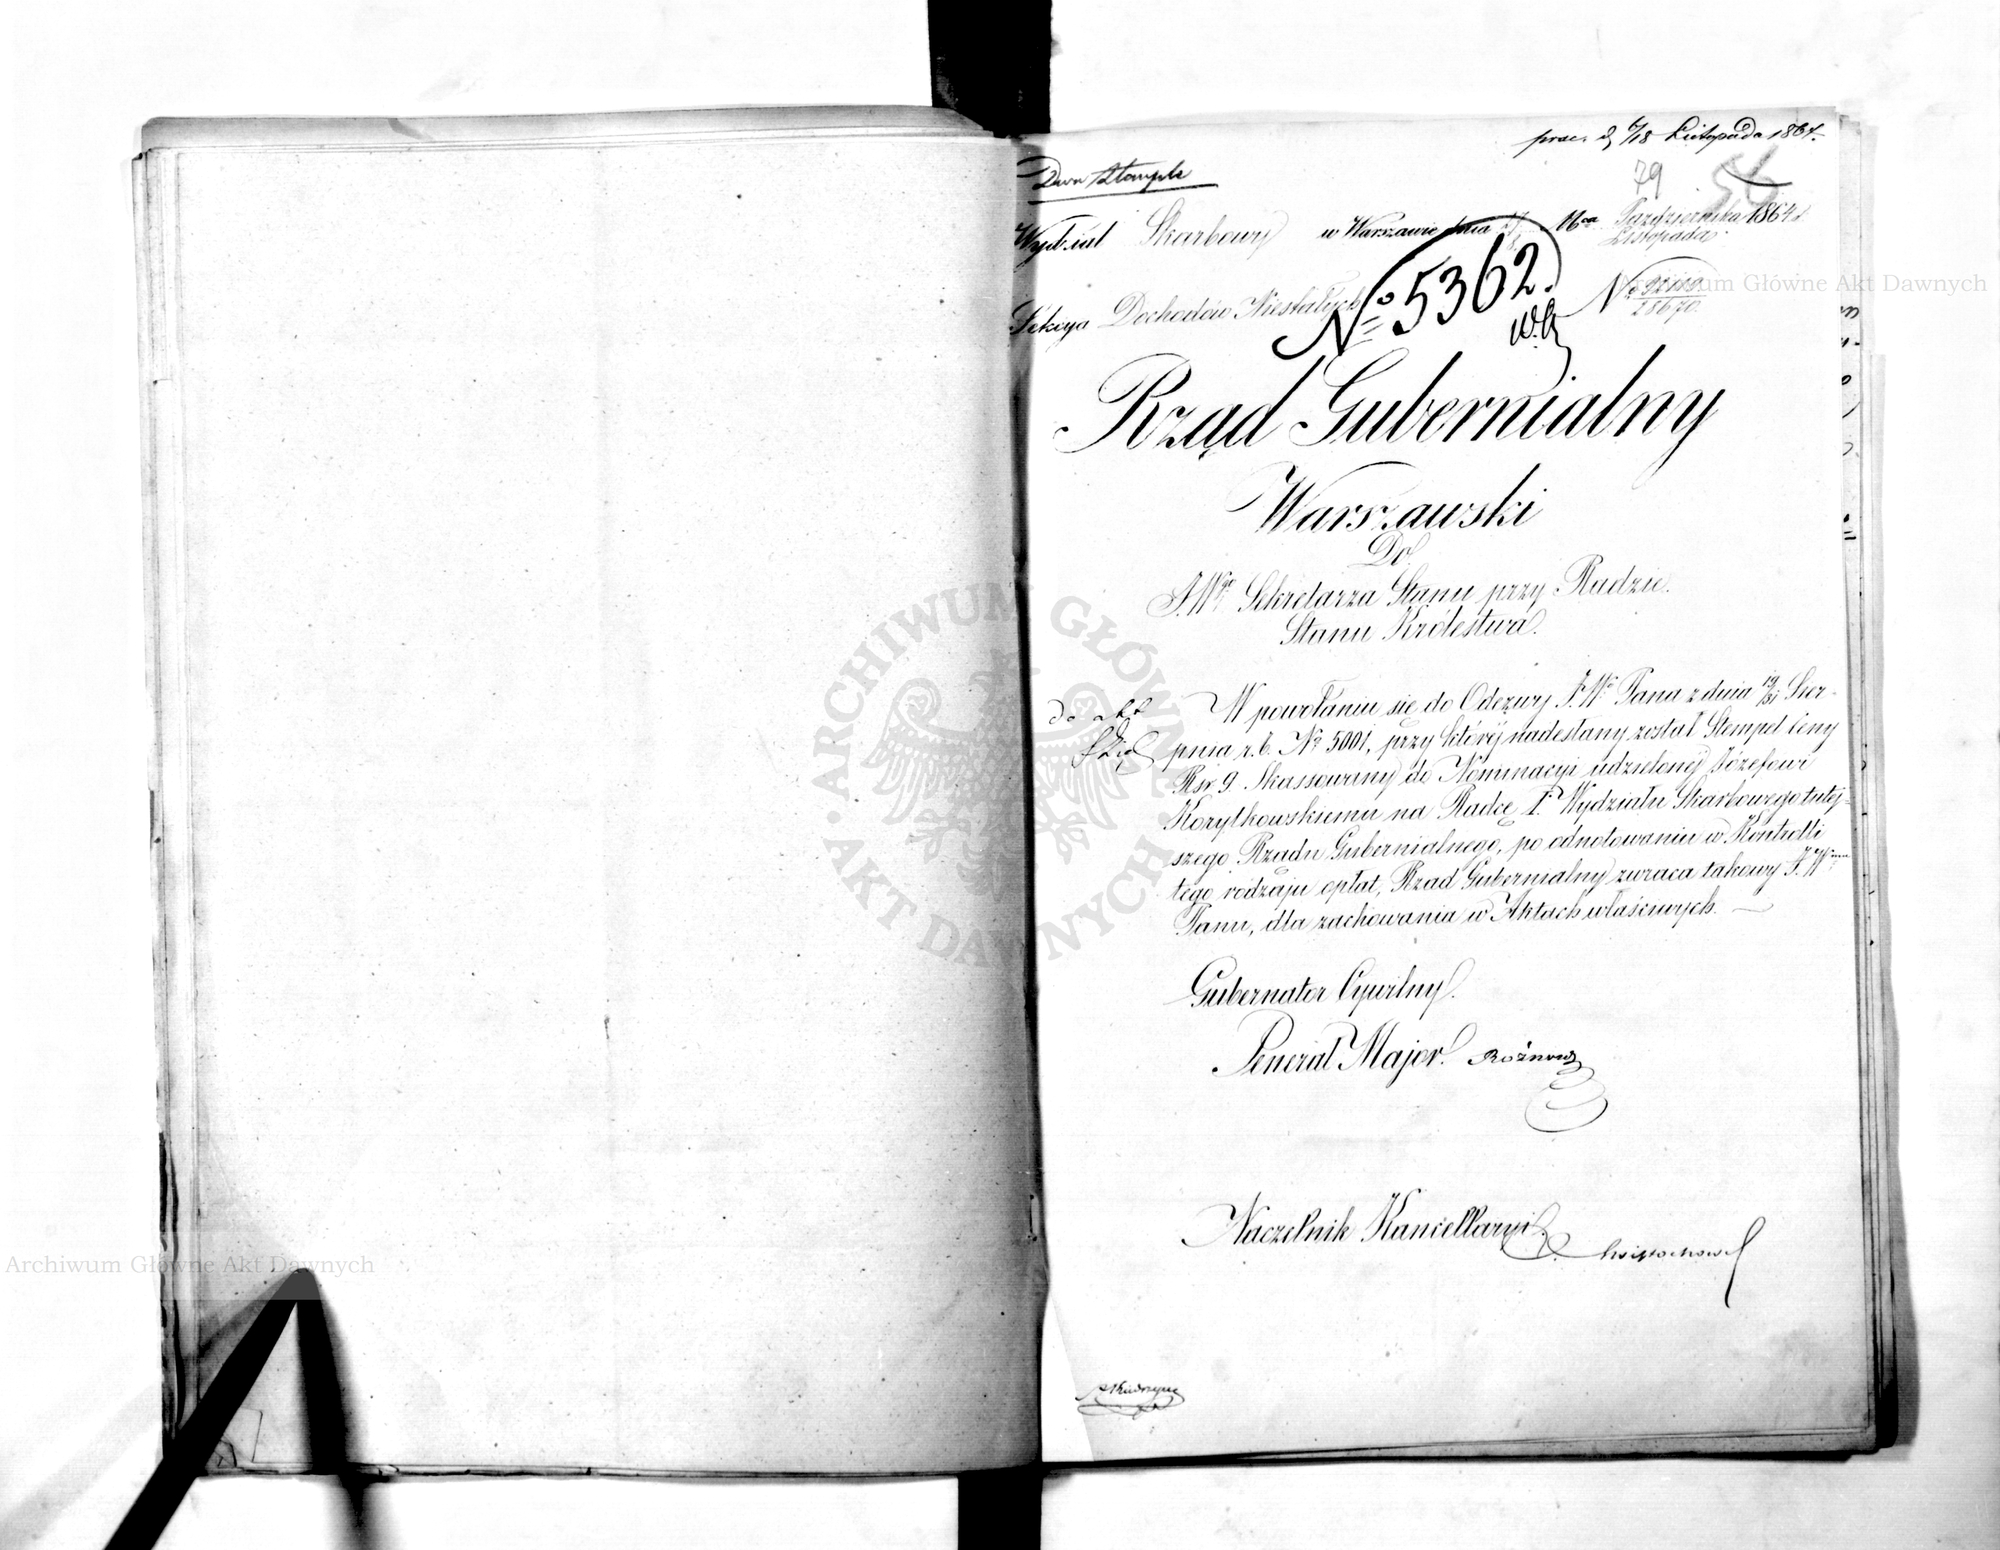 prez. d. 6/18 Listopada 1864.
Dwa Stemple
79 56
Wydział Skarbowy w Warszawie dnia Mca Października 1864 r.
Listopada
Sekcya Dochodów Niestałych
No 5362.
No
28670.
Rząd Gubernialny
Warszawski
Do
J.Wgo Sekretarza Stanu przy Radzie
Stanu Królestwa.
W powołaniu się do Odezwy J.W. Pana z dnia 19/31 Sier-
do akt
pnia r. b. No 5001, przy której nadesłany został Stempel Ceny
Rsr 9. Skassowany do Nominacyi udzielonej Józefowi
Korytkowskiemu na Radcę Wydziału Skarbowego tutej-
szego Rządu Gubernialnego, po odnotowaniu w Kontrolli
tego rodzaju opłat, Rząd Gubernialny zwraca takowy J.W.mu
Panu, dla zachowania w Aktach właściwych.
Gubernator Cywilny.
Generał Major. Rożnow
Naczelnik Kancellaryi
ARCHIWUM GŁÓWNE AKT DAWNYCH
Archiwum Główne Akt Dawnych
Archiwum Główne Akt Dawnych